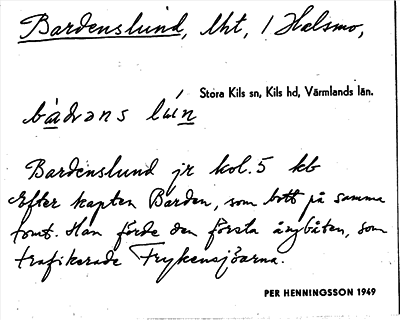 Bardenslund, lht, 1 Halsmo,
Stora Kils sn, Kils hd, Värmlands län.
bàdvans
Bardenslund jr kol. 5 kb
Efter kapten Barden, som bott på samma
tomt. Han förde den första ångbåten, som
trafikerade Frykensjöarna.
PER HENNINGSSON 1949